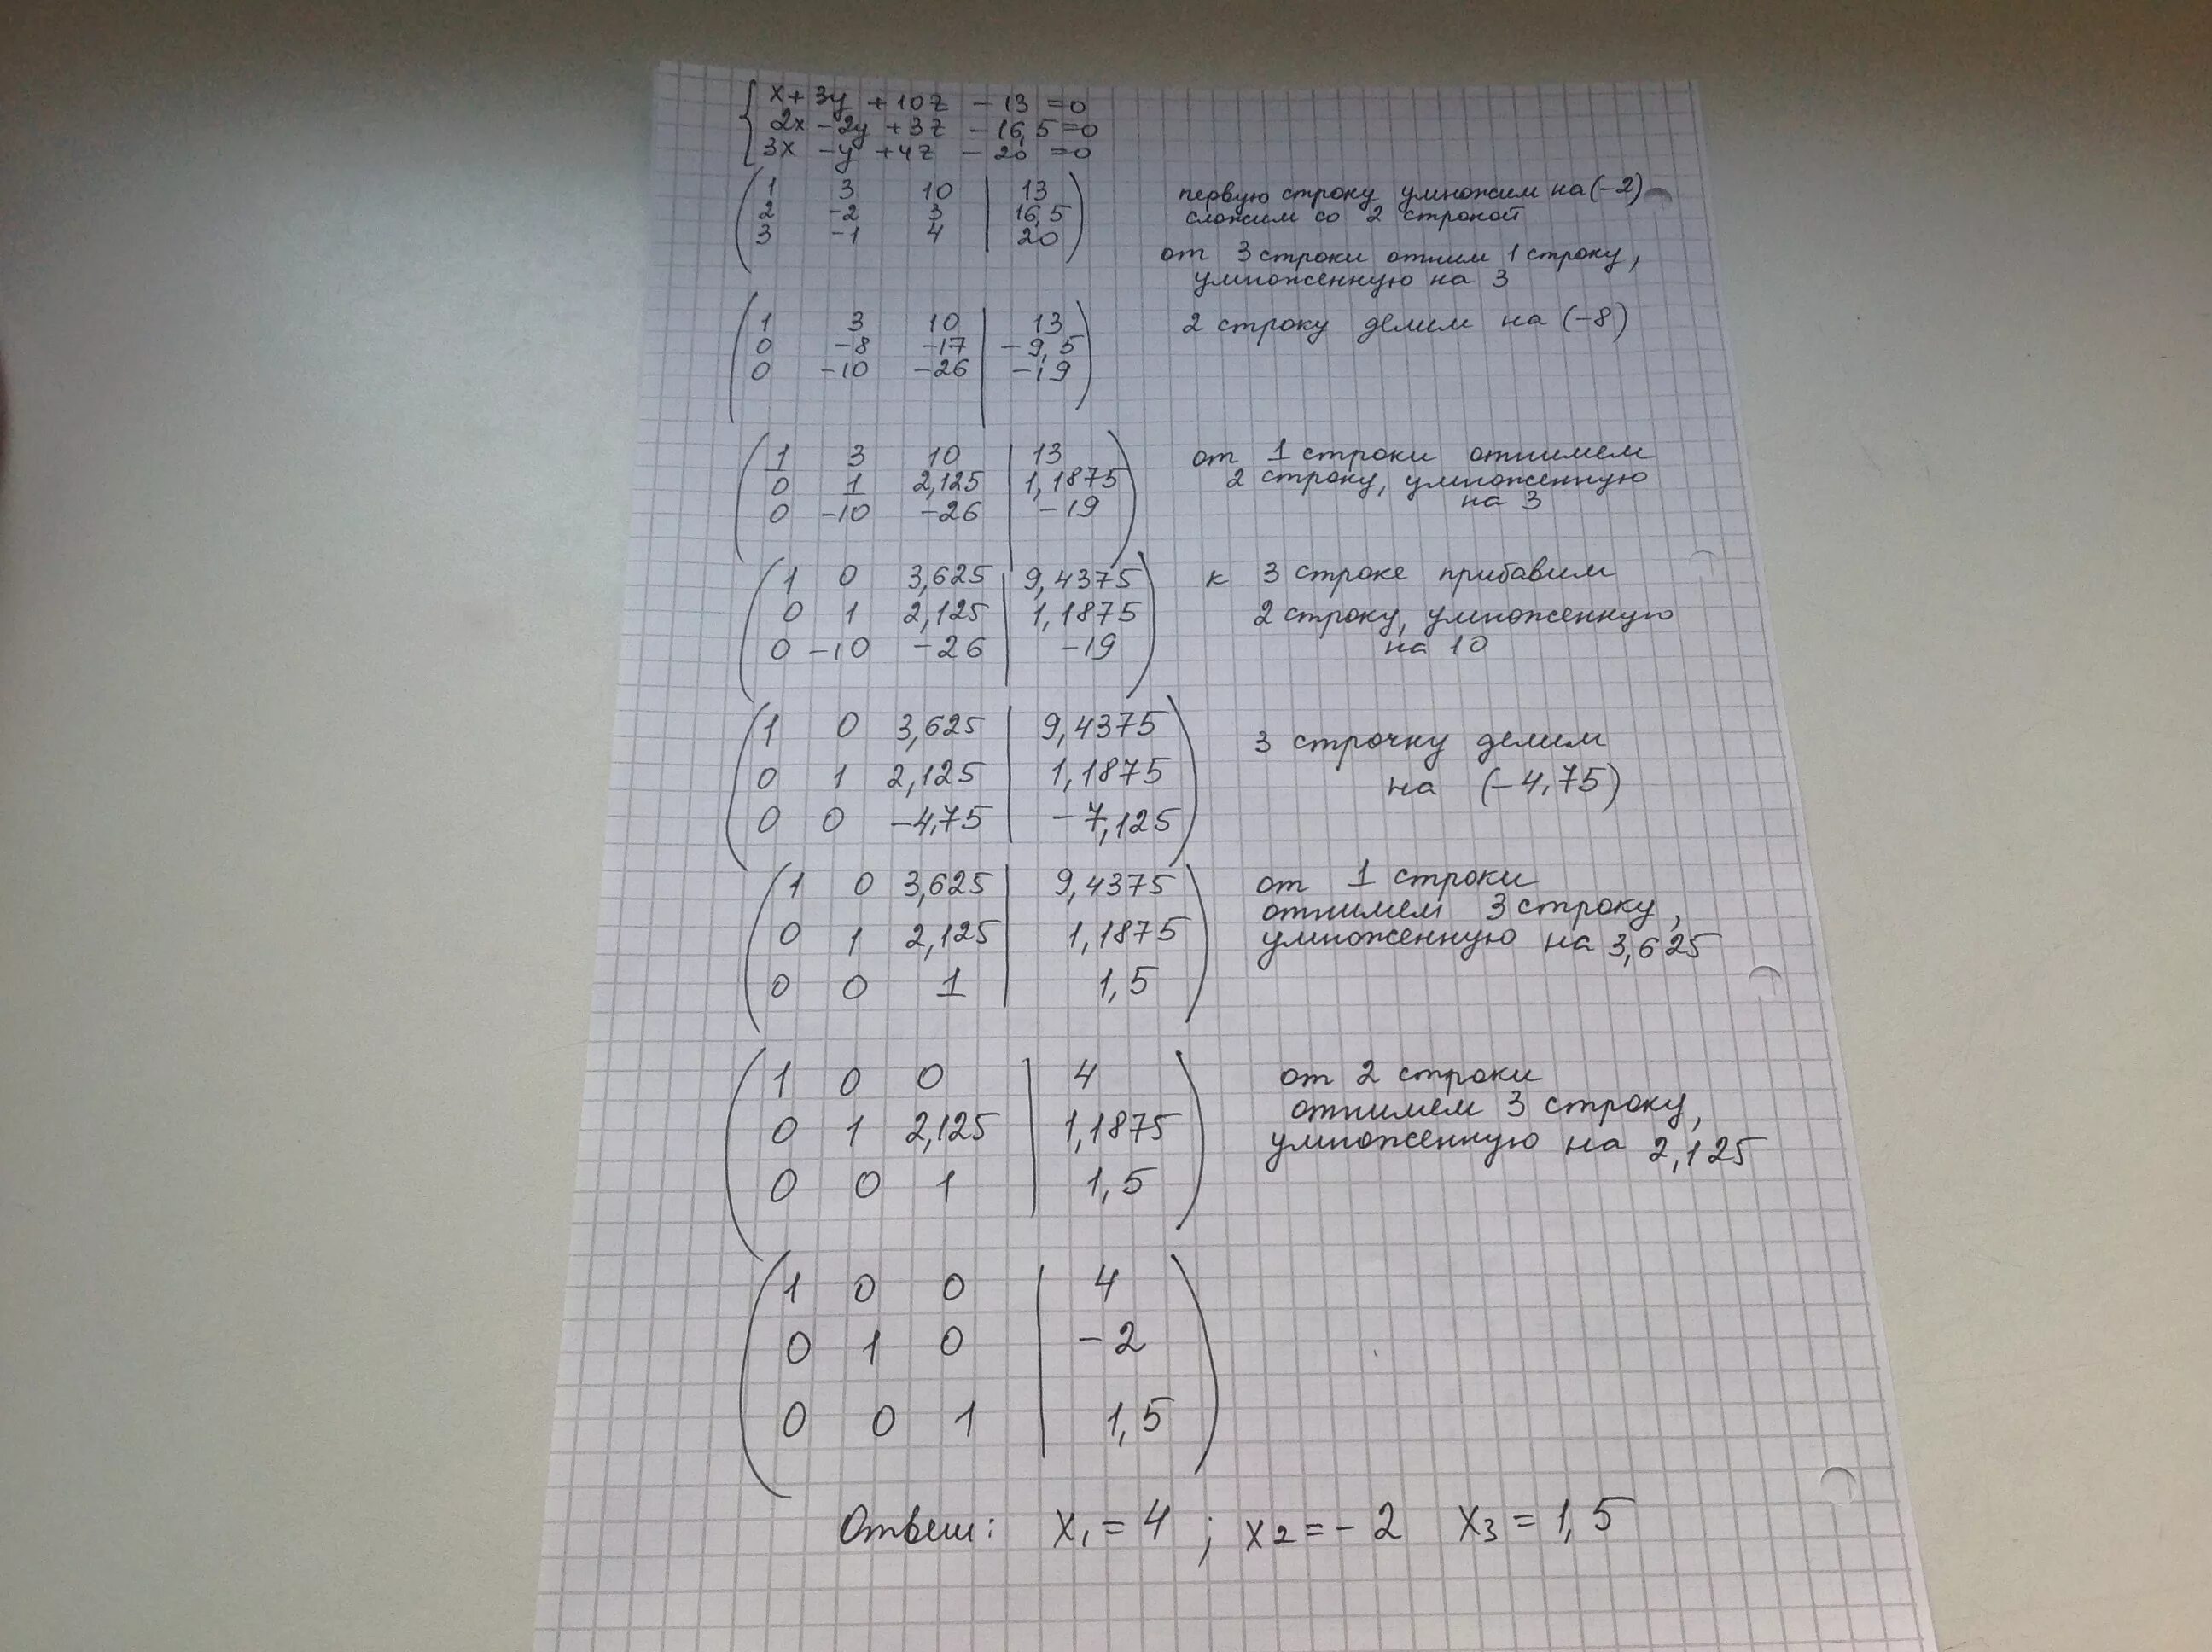 x + 3y + 10z - 13 = 0
2x - 2y + 3z - 16,5 = 0
3x - y + 4z - 20 = 0
1 3 10 | 13
2 -2 3 | 16,5
3 -1 4 | 20
первую строку умножим на (-2)
сложим со 2 строкой
от 3 строки отним 1 строку,
умноженную на 3
1 3 10 | 13
0 -8 -17 | -9,5
0 -10 -26 | -19
2 строку делим на (-8)
1 3 10 | 13
0 1 2,125 | 1,1875
0 -10 -26 | -19
от 1 строки отнимем
2 строку, умноженную
на 3
1 0 3,625 | 9,4375
0 1 2,125 | 1,1875
0 -10 -26 | -19
к 3 строке прибавим
2 строку, умноженную
на 10
1 0 3,625 | 9,4375
0 1 2,125 | 1,1875
0 0 -4,75 | -7,125
3 строчку делим
на (-4,75)
1 0 3,625 | 9,4375
0 1 2,125 | 1,1875
0 0 1 | 1,5
от 1 строки
отнимем 3 строку,
умноженную на 3,625
1 0 0 | 4
0 1 2,125 | 1,1875
0 0 1 | 1,5
от 2 строки
отнимем 3 строку,
умноженную на 2,125
1 0 0 | 4
0 1 0 | -2
0 0 1 | 1,5
Ответ: x1 = 4 ; x2 = -2 x3 = 1,5